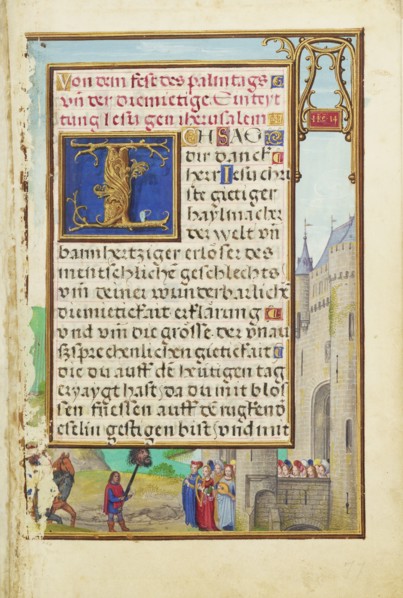 Von dem fest des palmtags
vn̄ der diemietige. Einreyt
tung Jesu gen iherusalem
ICH SAG
dir danck
herr Jesu chri
ste gietiger
haylmacher
der welt vn̄
barmhertziger erloser des
menntschlichē geschlechts
vm̄ deiner wunderbarlichē
diemietikait erklarung
vnd vm̄ die grösse. der vnau
szsprechenlichen gietikait
die du auff dē heutigen tag
erzaygt hast, da du mit blos
sen fuessen auff dē rugkend
eselin gestigen bist, vnd mit